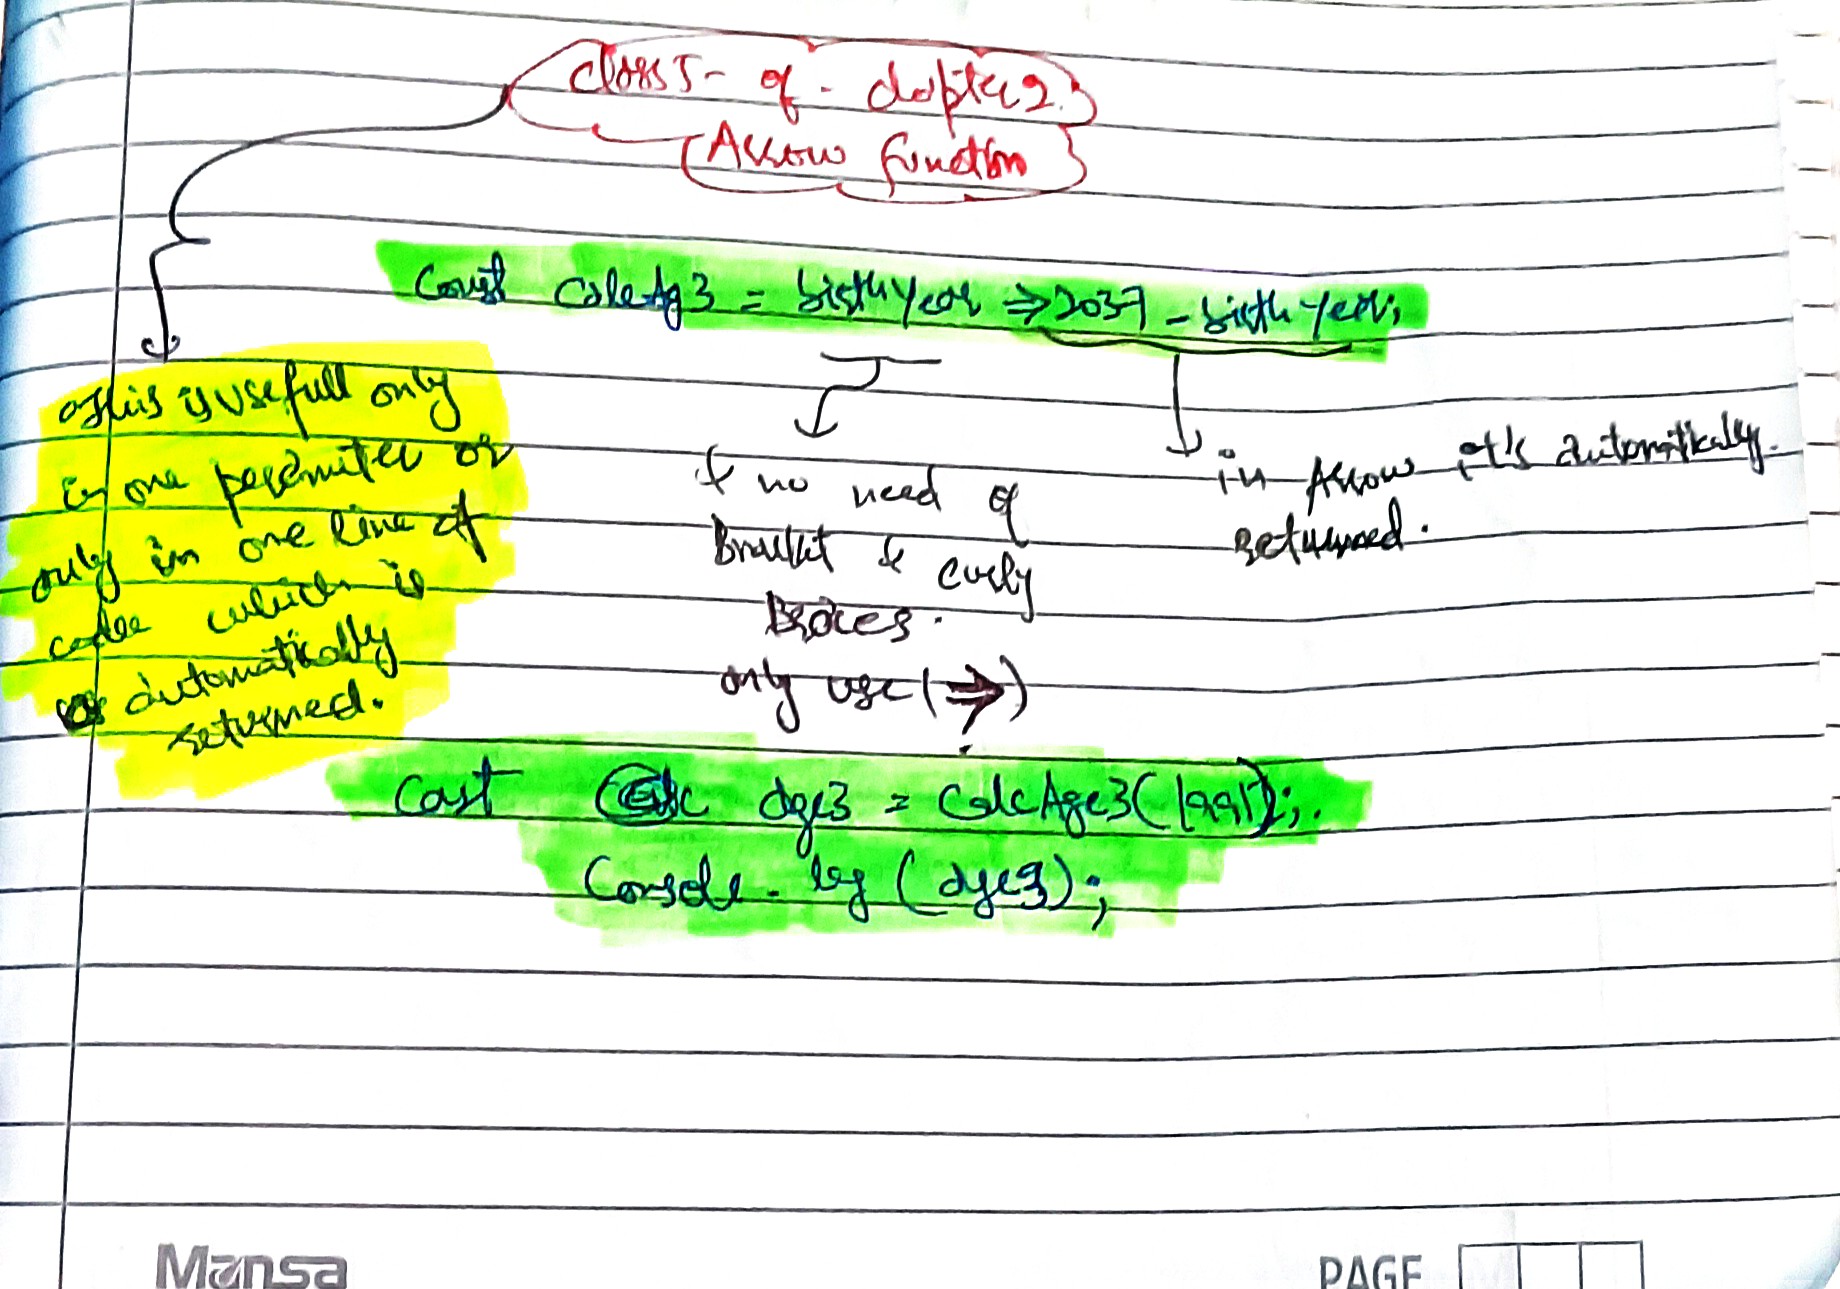 class 5 - of - chapter 2
Arrow function
Const calcAg3 = birthYear => 2037 - birthYear;
this is usefull only
in one perameter or
only in one line of
code which is
automatically
returned.
& no need of
Bracket & curly
Braces.
only use (⇒)
in Arrow it's automatically
returned.
Cost age3 = calcAge3(1991);
Console.log(age3);
Mansa
PAGE